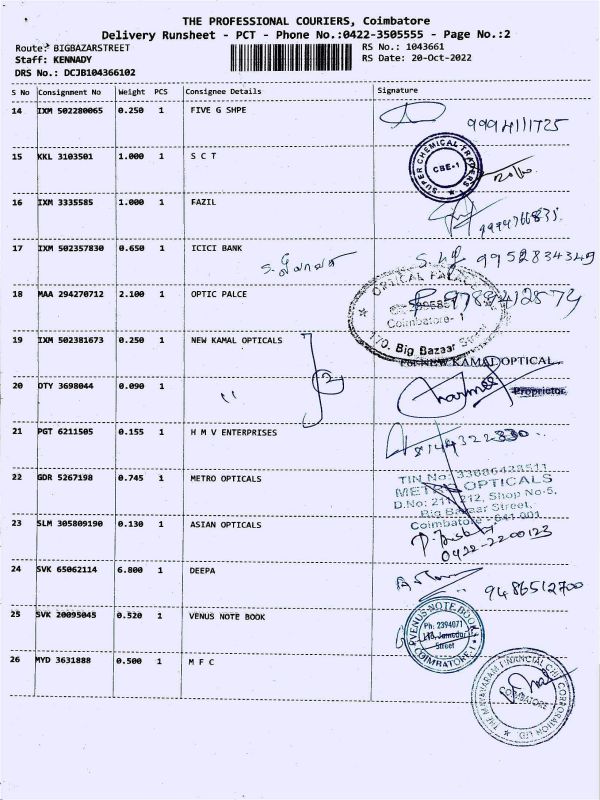 THE PROFESSIONAL COURIERS, Coimbatore
Delivery Runsheet - PCT - Phone No.:0422-3505555 - Page No.:2
Route: BIGBAZARSTREET
RS No.: 1043661
Staff: KENNADY
RS Date: 20-Oct-2022
DRS No.: DCJB104366102
S No Consignment No Weight PCS Consignee Details Signature
14 IXM 502280065 0.250 1 FIVE G SHPE
9994111725
15 KKL 3103501 1.000 1 S C T
SUPER CHEMICAL TRADERS
CBE-1
16 IXM 3335585 1.000 1 FAZIL
9994766835
17 IXM 502357830 0.650 1 ICICI BANK
9952834349
18 MAA 294270712 2.100 1 OPTIC PALCE
OPTICAL PALACE
9789412874
Coimbatore- 1
170, Big Bazaar Street
19 IXM 502381673 0.250 1 NEW KAMAL OPTICALS
For NEW KAMAL OPTICAL
2
20 DTY 3698044 0.090 1 "
Proprietor
21 PGT 6211505 0.155 1 H M V ENTERPRISES
8144322330
22 GDR 5267198 0.745 1 METRO OPTICALS
TIN No: 33686438511
METRO OPTICALS
212, Shop No-5,
Big Bazaar Street,
Coimbatore - 641 001
23 SLM 305809190 0.130 1 ASIAN OPTICALS
0422-2200123
24 SVK 65062114 6.800 1 DEEPA
9486512700
25 SVK 20095045 0.520 1 VENUS NOTE BOOK
VENUS NOTE BOOK
Ph: 2394071
Street
COIMBATORE-1
26 MYD 3631888 0.500 1 M F C
THE MAYAVARAM FINANCIAL CHIT CORPORATION LTD
COIMBATORE